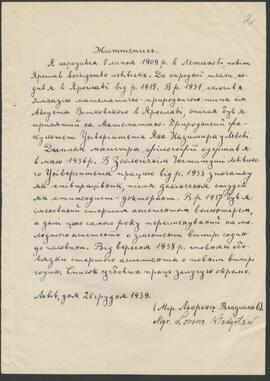 2
Життєпись.
Я народився 5 липня 1909 р. в                повіт
Ярослав воєвідство львівське. До народної школи хо-
див я в Ярославі від р. 1915. В р. 1931 скінчив я
гімназію математично-природничого типа ім.
Августа Вітковского в Ярославі, опісля був
принятий на Математично-Природничий фа-
культет Університета Яна Казимира у Львові.
Диплом магістра філософії одержав
я в маю 1936 р. В Зоольогічнім Інституті Львівсь-
кого Університета працюю від р. 1933 зпочатку
як співпрацівник, після закінчення студій
як стипендист-докторант. В р. 1937 був
старшим асистентом волонтиром,
а дня     того самого року переіменований на мо-
лодшого асистента з                годин
до половини. Від вересня 1938 р. сповняю обо-
вязки старшого асистента о повнім вимірі
годин. Список наукових праць залучую окремо.
Львів, дня 20 грудня 1939.
(Мгр. Лоренц Владислав).
Mgr. Lorenc Władysław